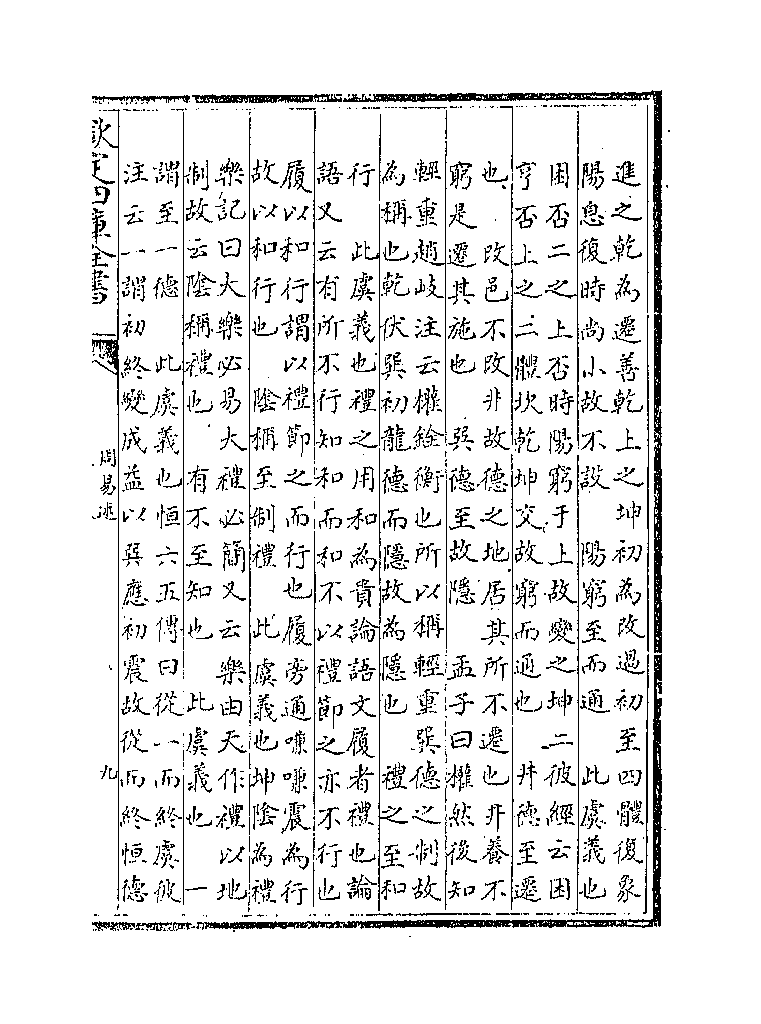 進之乾為遷善乾上之坤初為改過初至四體復象
陽息復時尚小故不設　陽窮至而通　此虞義也
困否二之上否時陽窮于上故變之坤二彼經云困
亨否上之二體坎乾坤交故窮而通也　井德至遷
也　改邑不改井故德之地居其所不遷也井養不
窮是遷其施也　巽德至故隱　孟子曰權然後知
輕重趙岐注云權銓衡也所以稱輕重巽德之制故
為稱也乾伏巽初龍德而隱故為隱也　禮之至和
行　此虞義也禮之用和為貴論語文履者禮也論
語又云有所不行知和而和不以禮節之亦不行也
履以和行謂以禮節之而行也履旁通嗛嗛震為行
故以和行也　陰稱至制禮　此虞義也坤陰為禮
樂記曰大樂必易大禮必簡又云樂由天作禮以地
制故云陰稱禮也　有不至知也　此虞義也　一
謂至一德　此虞義也恒六五傳曰從一而終虞彼
注云一謂初終變成益以巽應初震故從而終恒德
欽定四庫全書
周易述
九